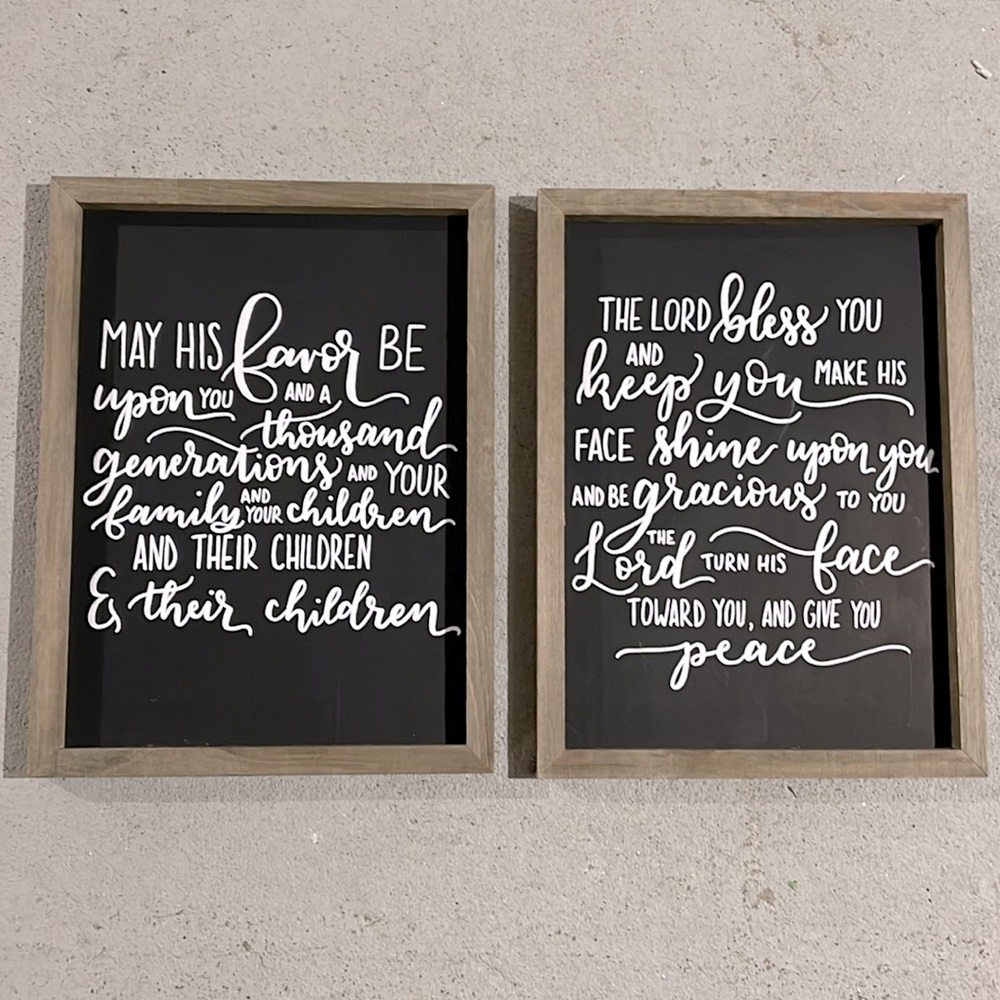 MAY HIS favor BE
upon YOU AND A
thousand
generations AND YOUR
family AND YOUR children
AND THEIR CHILDREN
& their children
THE LORD bless YOU
AND
keep you MAKE HIS
FACE shine upon you
AND BE gracious TO YOU
THE
Lord TURN HIS face
TOWARD YOU, AND GIVE YOU
peace